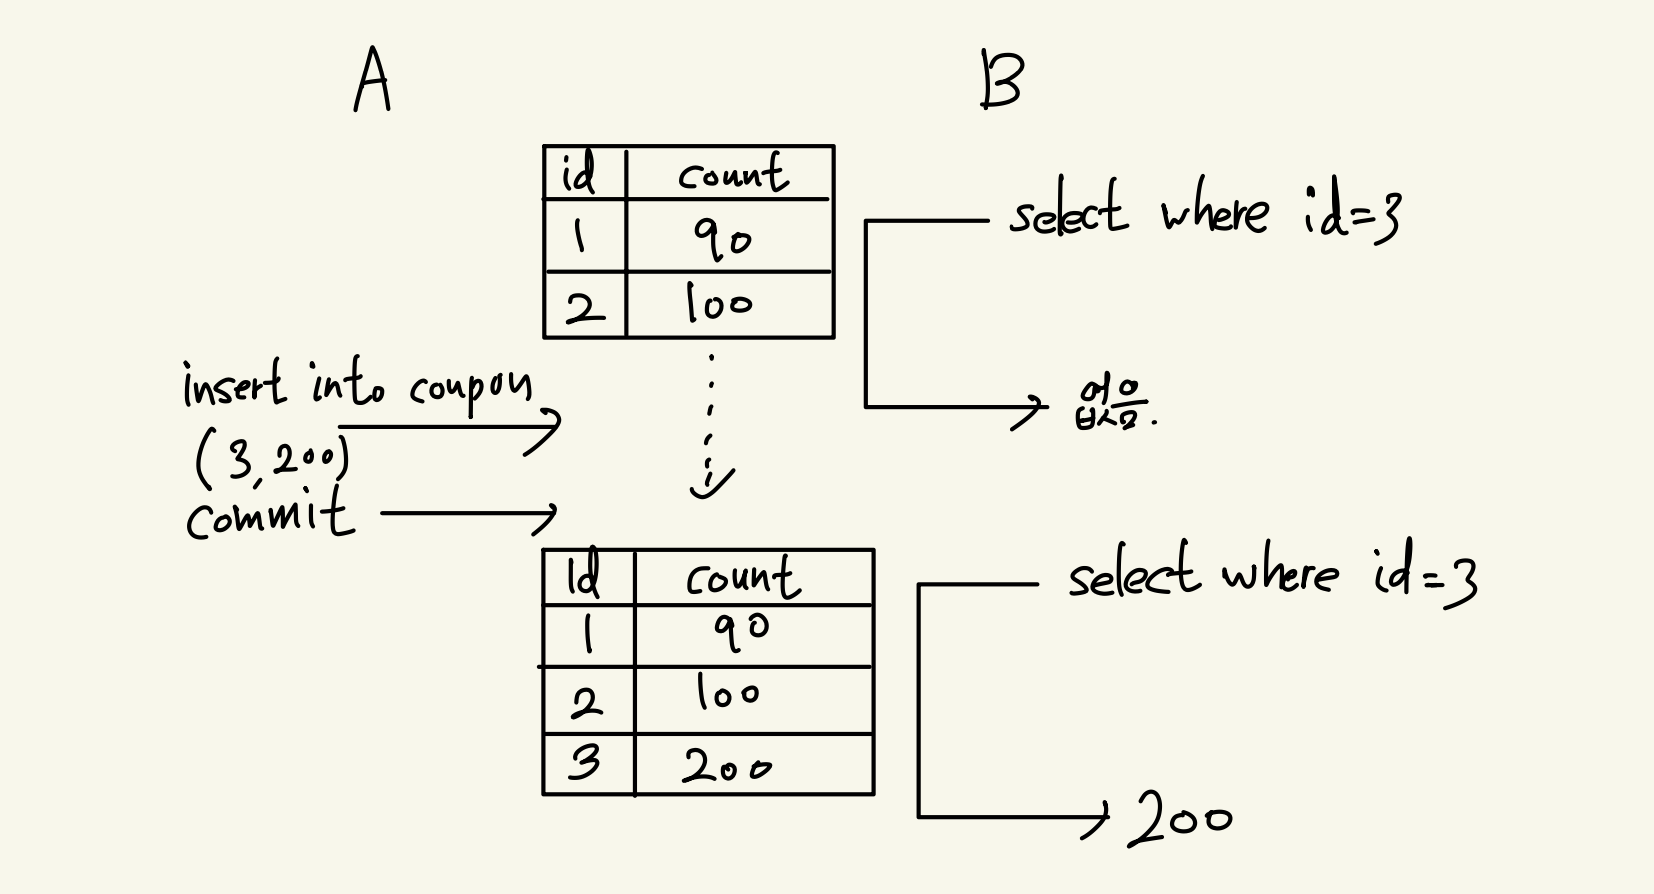 A
B
id count
1 90
2 100
select where id=3
없음.
insert into coupon
(3,200)
commit
id count
1 90
2 100
3 200
select where id=3
200